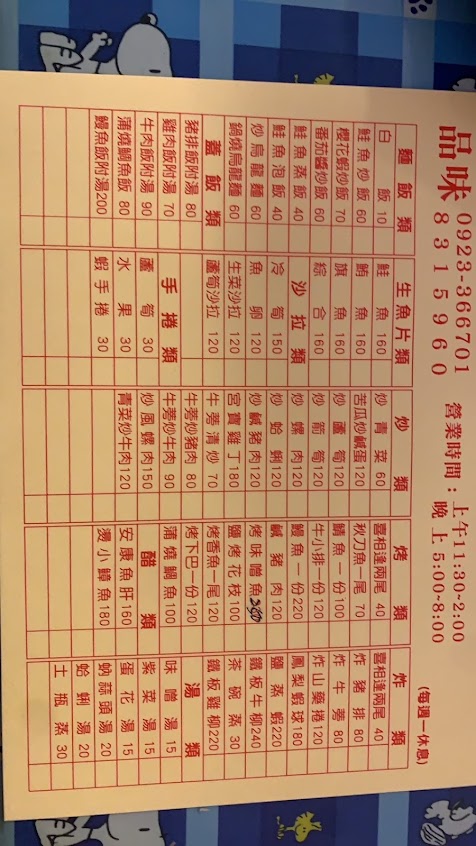 品味 0923-366701
8315960
營業時間：上午11:30-2:00
晚上5:00-8:00
(每週一休息)
麵飯類
白飯 10
鮭魚炒飯 60
櫻花蝦炒飯 70
番茄醬炒飯 60
鮭魚蒸飯 40
鮭魚泡飯 40
炒烏龍麵 60
鍋燒烏龍麵 60
蓋飯類
豬排飯附湯 80
雞肉飯附湯 70
牛肉飯附湯 90
蒲燒鯛魚飯 80
鰻魚飯附湯 200
生魚片類
鮭魚 160
鮪魚 160
旗魚 160
綜合 160
沙拉類
冷筍 150
魚卵 120
生菜沙拉 120
蘆筍沙拉 120
手捲類
蘆筍 30
水果 30
蝦手捲 30
炒類
炒青菜 60
苦瓜炒鹹蛋 120
炒蘆筍 120
炒箭筍 120
炒螺肉 120
炒蛤蜊 120
炒鹹豬肉 120
宮寶雞丁 180
牛蒡清炒 70
牛蒡炒豬肉 80
牛蒡炒牛肉 90
炒風螺肉 150
青菜炒牛肉 120
烤類
喜相逢兩尾 40
秋刀魚一尾 70
鯖魚一份 100
牛小排一份 120
鰻魚一份 220
鹹豬肉 120
烤味噌魚 250
鹽烤花枝 100
烤香魚一尾 120
烤下巴一份 120
蒲燒鯛魚 100
醋類
安康魚肝 160
燙小鱆魚 180
炸類
喜相逢兩尾 40
炸豬排 80
炸牛蒡 80
炸山藥捲 120
鳳梨蝦球 180
鹽蒸蝦 220
鐵板牛柳 240
茶碗蒸 30
鐵板雞柳 220
湯類
味噌湯 15
紫菜湯 15
蛋花湯 15
蚋蒜頭湯 20
蛤蜊湯 20
土瓶蒸 30